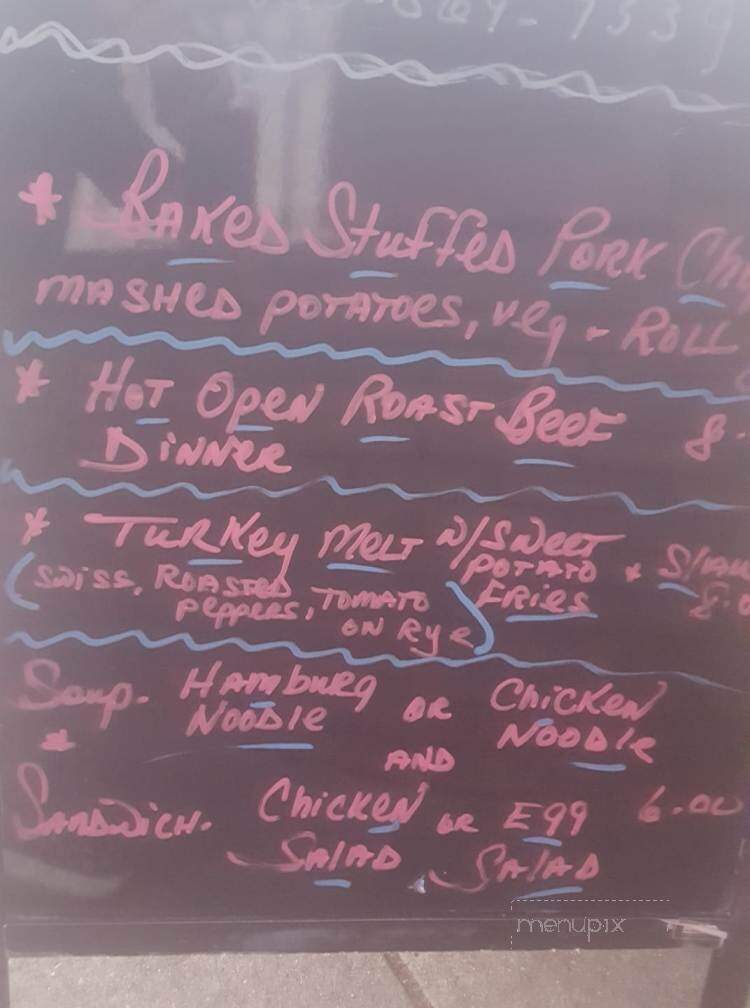 * Baked Stuffed Pork
mashed potatoes, veg - Roll
* Hot Open Roast Beef 8.
Dinner
* Turkey Melt w/Sweet
Potato
Fries
(Swiss, Roasted
Peppers, Tomato
on Rye)
Soup - Hamburg or Chicken
Noodle Noodle
* and
Sandwich - Chicken or Egg 6.00
Salad Salad
menupix